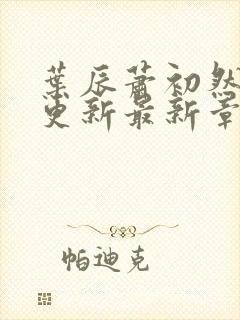 葉辰蕭初然
更新最新章
帕迪克